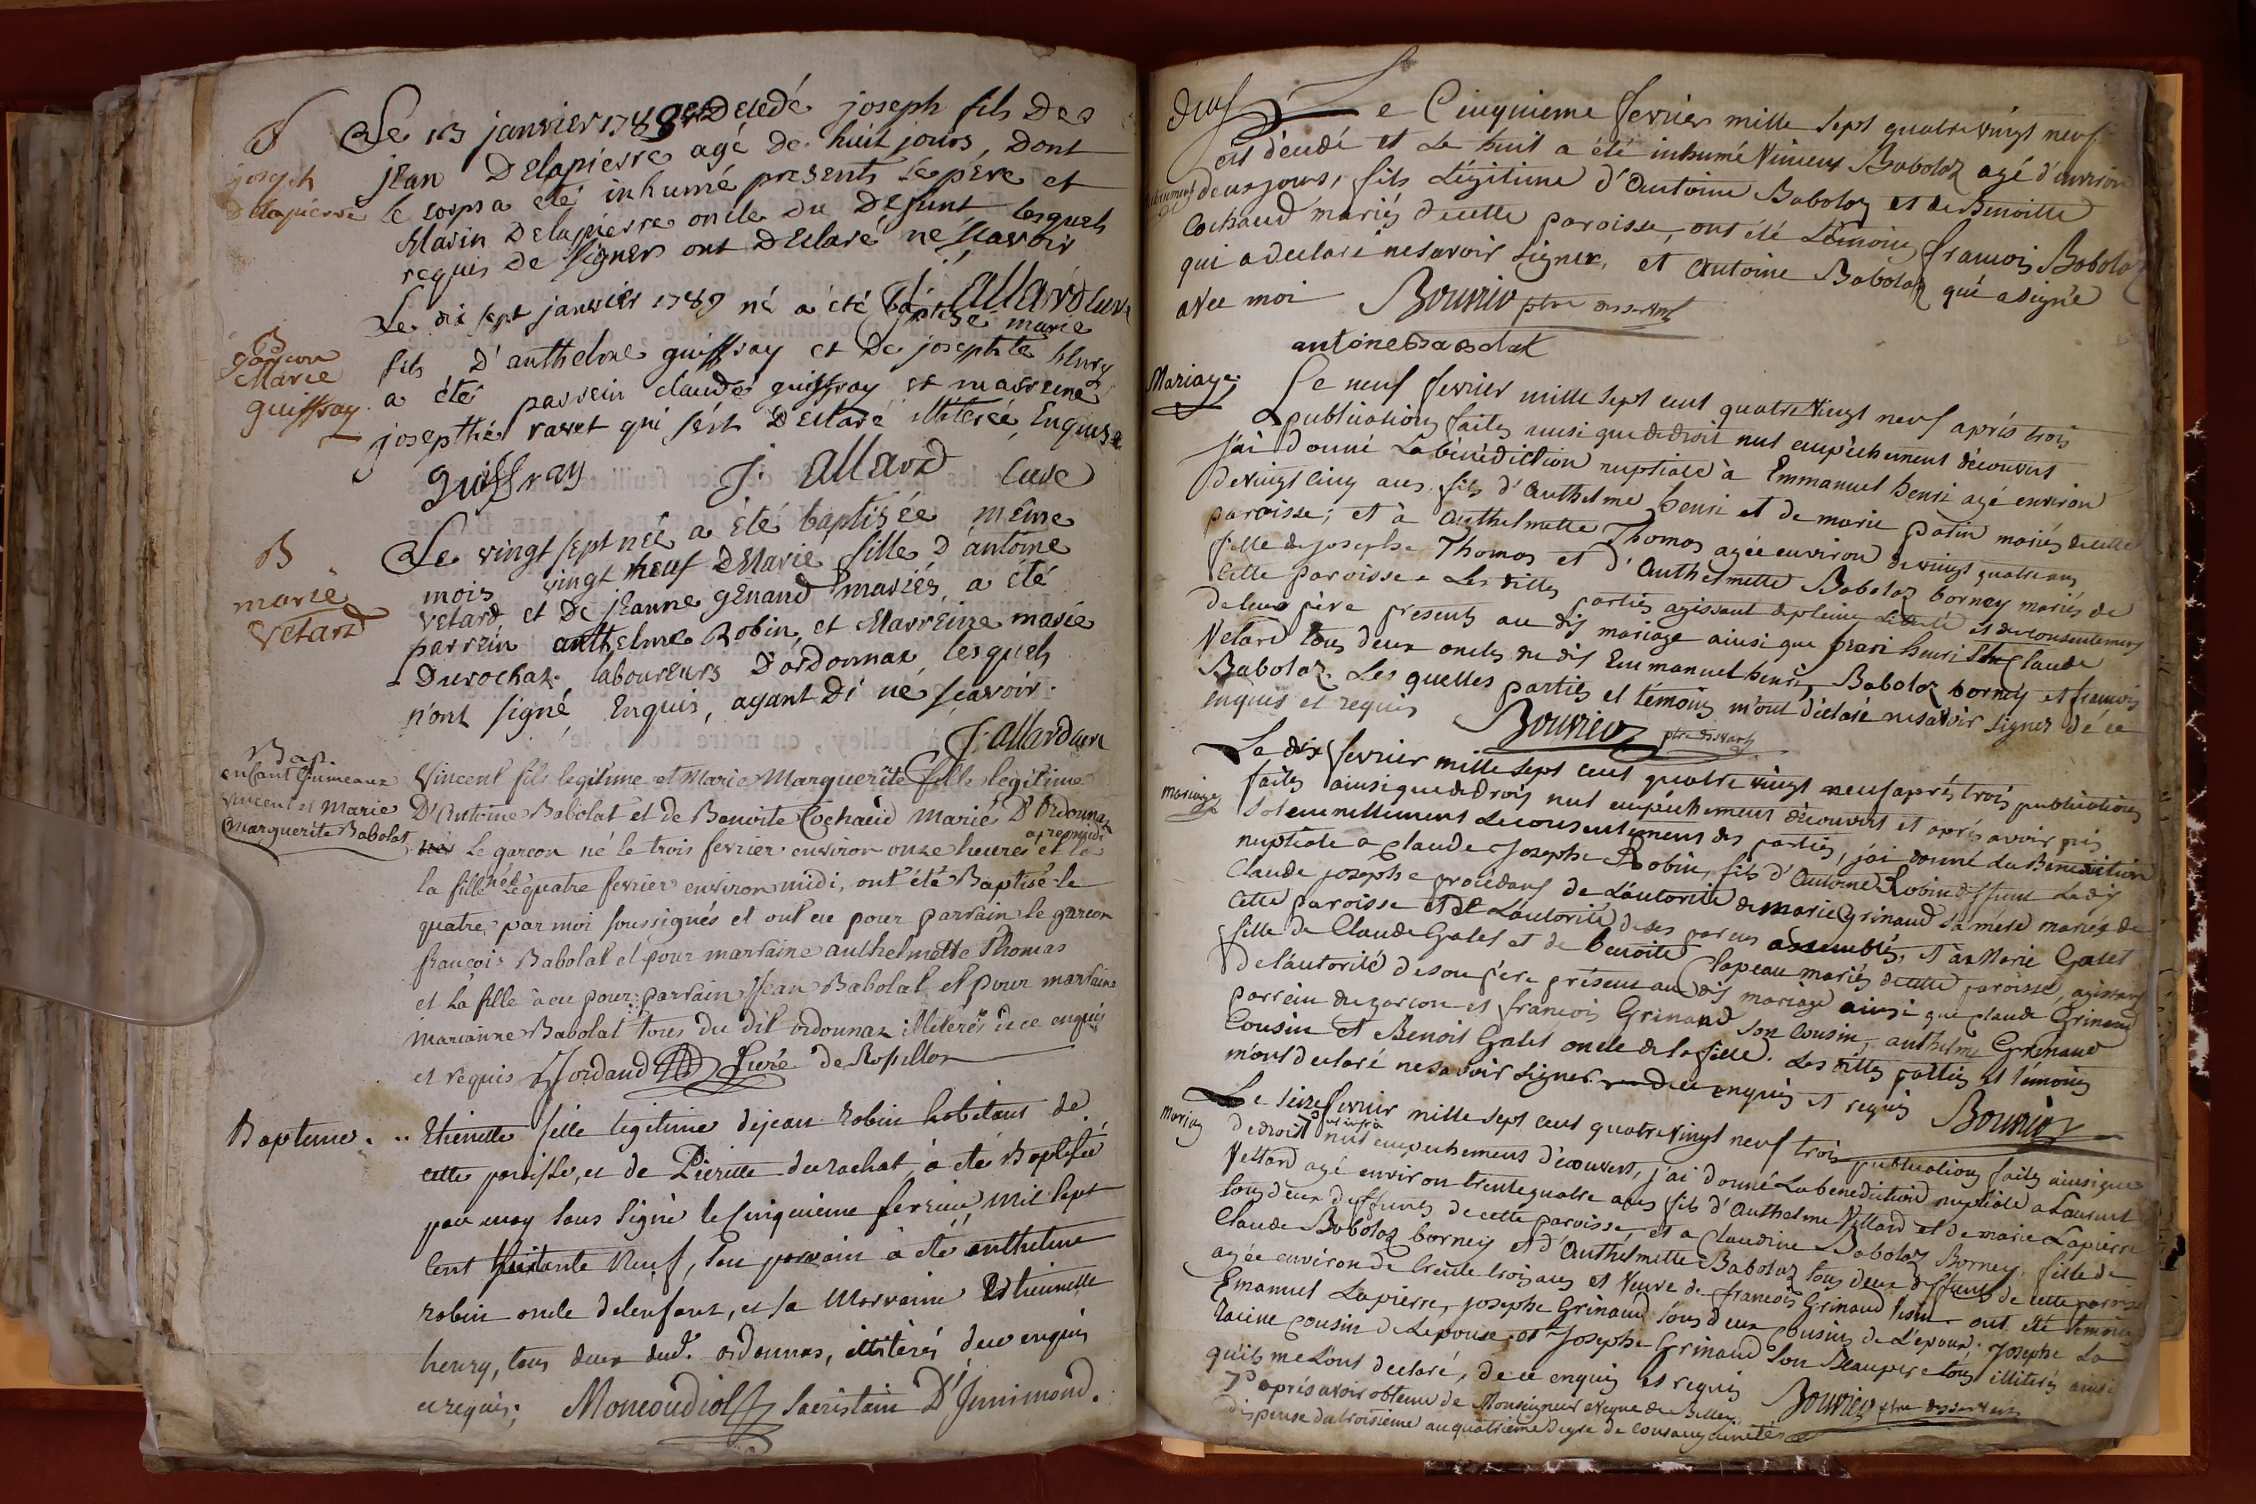 S
joseph
Delapierre
Le 13 janvier 1789 est Decedé joseph fils De
jean Delapierre agé de huit jours, dont
le corps a été inhumé presents le père et
Marin Delapierre oncle du Defunt lesquels
requis de signer ont Declaré ne sçavoir
J. allard curé
B
garçon
Marie
guiffray
Le dix sept janvier 1789 né a été baptisé marie
fils D'anthelme guiffray et De josephte henry
a été parrein claude guiffray et marreine
josephte ravet qui s'est Declaré illiterée Enquise
guiffray J. allard curé
B
marie
Vetard
Le vingt sept née a été baptisée même
mois vingt neuf Marie fille d'antoine
vetard, et De jeanne genand mariés, a été
parrein anthelme Robin, et Marreine marie
Durochat laboureurs D'ordonnaz lesquels
n'ont signé Enquis, ayant Di né sçavoir.
J. allard curé
Bap.
enfant Jumeaux
vincent et Marie
Marguerite Babolat
Vincent fils legitime et Marie Marguerite fille legitime
D'Antoine Babolat et de Benoite Cochaud marié D'Ordonnaz
apres midi
nés Le garcon né le trois fevrier environ onze heures et la
la fille née le quatre fevrier environ midi, ont été Baptisé le
quatre par moi soussignés et ont eu pour parrain le garcon
françois Babolat et pour marraine anthelmette Thomas
et la fille a eu pour parrain Jean Babolat et pour marraine
marianne Babolat tous du dit ordonnaz illiterés de ce enquis
et requis Jordand Curé de Rossillon
Bapteme.
Etienette fille legitime de jean robin habitant de
cette paroisse, et de Pierette durochat, a été Baptisée
par moy sous signé le cinquieme fevrier mil sept
cent huitante neuf, son parrain à été anthelme
robin oncle de lenfant, et sa Marraine Estiennette
henry, tous deux dud. ordonnas, illiterés de ce enquis
et requis; Moncoudiol sacristain D'Innimond.
Le Cinquieme fevrier mille sept quatre vingt neuf
est décedé et le huit a été inhumé Vincent Babolaz agé d'environ
deux jours, fils Légitime d'Antoine Babolaz et de Benoitte
Cochaud mariés de cette paroisse, ont été témoins francois Babolaz
qui a declaré ne savoir signer, et Antoine Babolaz qui a signé
avec moi Bouvier ptre desservant
antone Babolat
Mariage.
Le neuf fevrier mille sept cent quatre vingt neuf après trois
publications faites ainsi que de droit nul empêchement découvert
j'ai donné La bénédiction nuptiale à Emmanuel henri agé environ
de vingt cinq ans fils d'Anthelme henri et de marie patin mariés de cette
paroisse; et à Anthelmette Thomas agée environ de vingt quatre ans
fille de josephe Thomas et d'Anthelmette Babolaz borney mariés de
cette paroisse. Les dittes parties agissant de pleine Liberté et du consentement
de leur père presents au dis mariage ainsi que henri Claude
Vetard tous deux oncles du dis Emmanuel henri, Babolaz borney et francois
Babolaz. Les quelles parties et témoins m'ont déclaré ne savoir signer de ce
enquis et requis Bouvier ptre desservant
mariage
Le dix fevrier mille sept cent quatre vingt neuf après trois publications
faites ainsi que de Droit nul empêchement découvert et après avoir pris
solemnellement Le consentement des parties, j'ai donné La Benediction
nuptiale a Claude Josephe Robin, fils d'Antoine Robin deffunt Ledis
Claude josephe procédant de L'autorité de marie Grinand sa mère mariés de
cette paroisse et de L'autorité de ses parens assemblés, et à Marie Galet
fille de Claude Galet et de benoite Clapeau mariés de cette paroisse, agissant
de l'autorité de son père présent au dis mariage ainsi que Claude Grinand
parrein du garcon et francois Grinand son Cousin, anthelme Grinand
Cousin et Benoit Galet oncle de la fille. Les dittes parties et témoins
m'ont declaré ne savoir signer de ce enquis et requis Bouvier
Mariage
Le seize fevrier mille sept cent quatre vingt neuf trois publications faites ainsi que
de droit nul empêchement découvert, j'ai donné La benediction nuptiale a Laurent
Vettard agé environ trente quatre ans fils d'Anthelme Vettard et de marie Lapierre
tous deux deffunts de cette paroisse, et a Claudine Babolaz Borney, fille de
Claude Babolaz borney et d'Anthelmette Babolaz tous deux deffunts de cette paroisse
agée environ de trente trois ans et Veuve de francois Grinand ont été témoins
Emanuel Lapierre, josephe Grinand tous deux Cousins de L'epoux; Josephe La
racine cousin de Lepouse et Josephe Grinand son Beaupere tous illiterés ainsi
qu'ils me L'ont declaré, de ce enquis et requis Bouvier ptre desservant
après avoir obtenu de Monseigneur eveque de Belley
dispense du troisieme au quatrieme degré de consanguinité